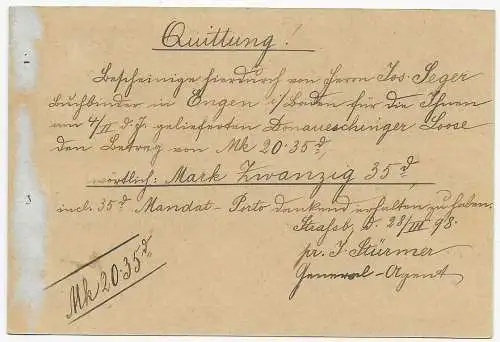 Quittung!
Bescheinige hierdurch von Herrn Jos. Seger
Buchbinder in Engen i/Baden für die Ihnen
am 4/II d. J. gelieferten Donaueschinger Loose
den Betrag von Mk 20.35 d,
wörtlich: Mark Zwanzig 35 d,
incl. 35 d Mandat-Porto dankend erhalten zu haben.
Strassb, d. 28/III 98.
pr. J. Stürmer
General-Agent
Mk 20.35 d